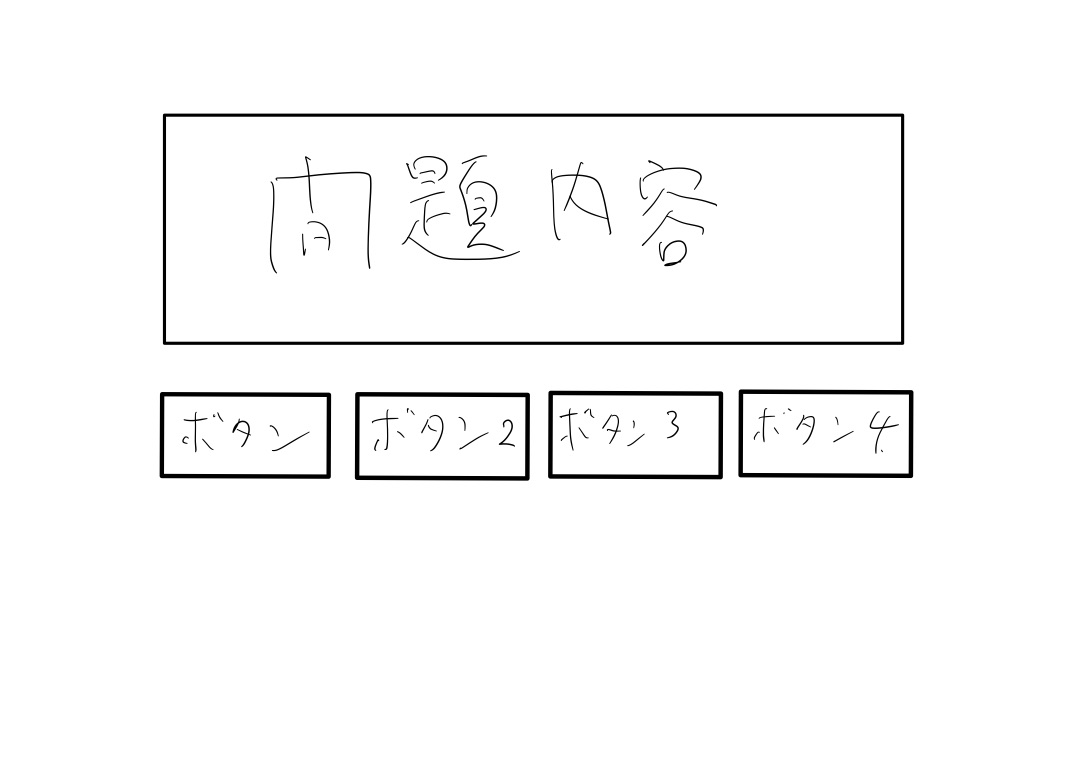 問題内容
ボタン
ボタン2
ボタン3
ボタン4